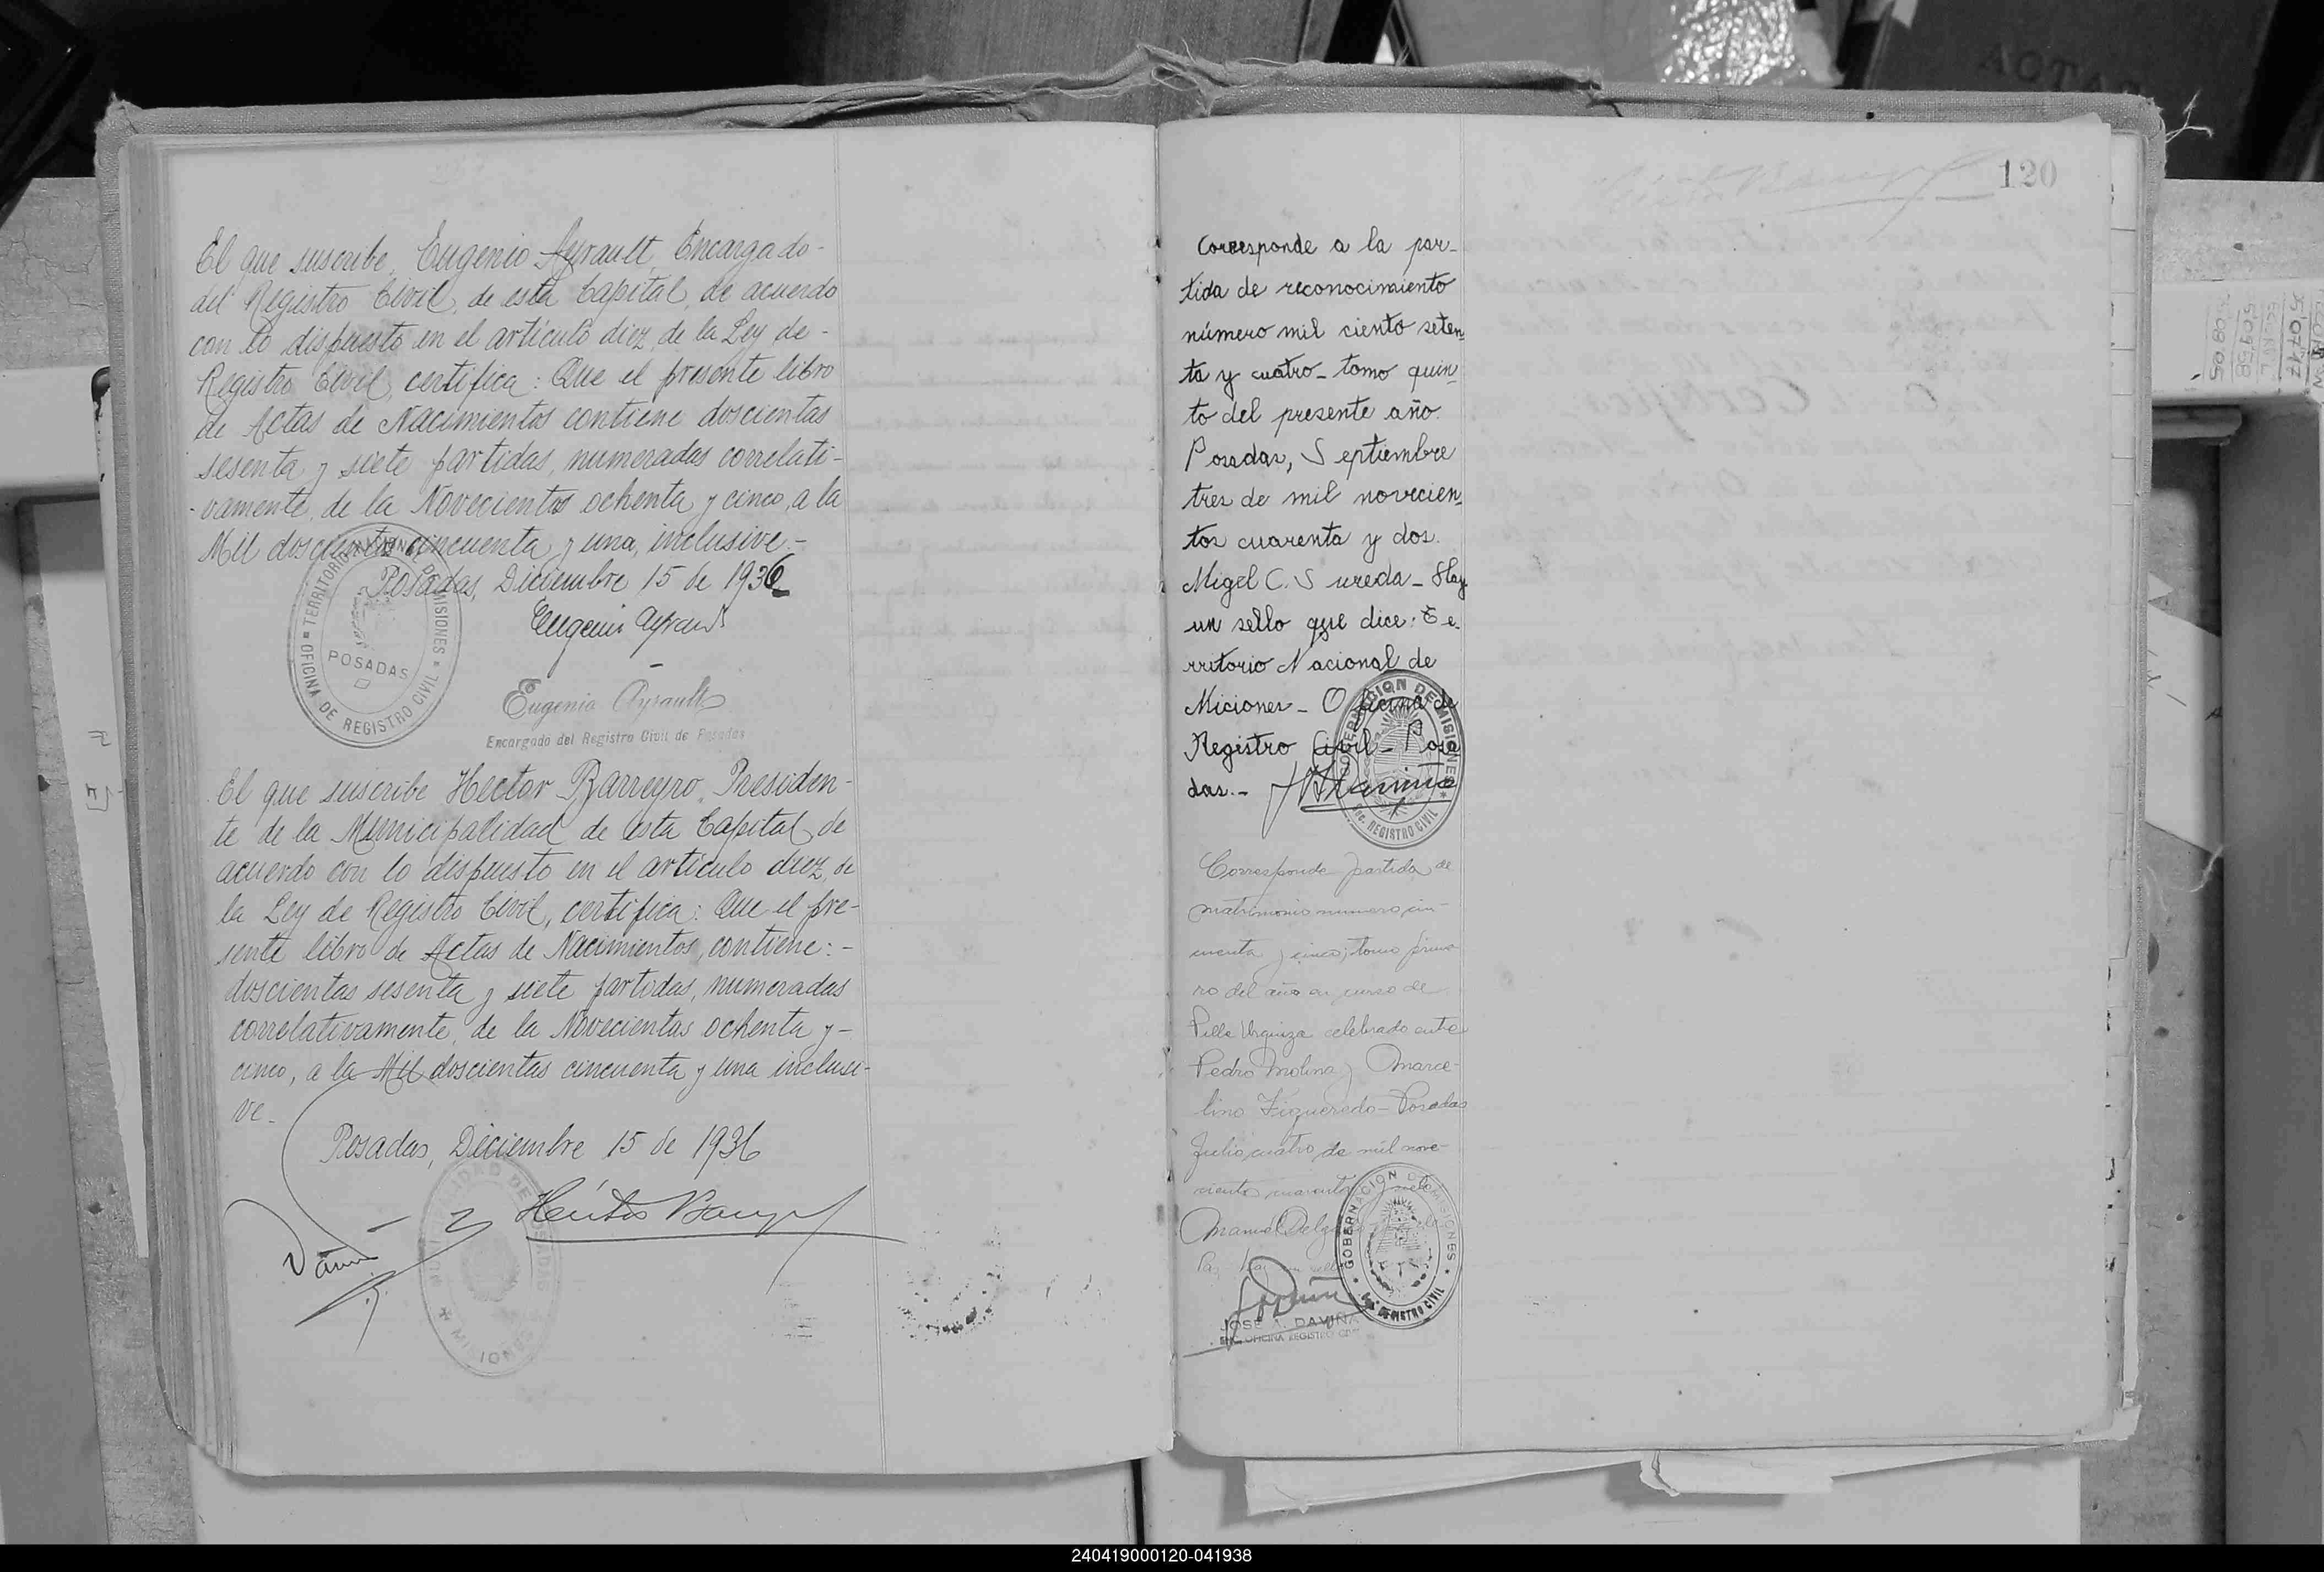 El que suscribe, Eugenio Ayrault, Encargado-
del Registro Civil, de esta Capital, de acuerdo
con lo dispuesto en el artículo diez, de la Ley de-
Registro Civil, certifica: Que el presente libro
de Actas de Nacimientos contiene doscientas
sesenta y siete partidas, numeradas correlati-
vamente, de la Novecientos ochenta y cinco, a la
Mil doscientos cincuenta y una, inclusive.-
Posadas, Diciembre 15 de 1936
Eugenio Ayrault
TERRITORIO NACIONAL DE MISIONES
OFICINA DE REGISTRO CIVIL
POSADAS
Eugenio Ayrault
Encargado del Registro Civil de Posadas
El que suscribe Hector Barreyro, Presiden-
te de la Municipalidad de esta Capital, de
acuerdo con lo dispuesto en el artículo diez, de
la Ley de Registro Civil, certifica: Que el pre-
sente libro de Actas de Nacimientos, contiene:-
doscientas sesenta y siete partidas, numeradas
correlativamente, de la Novecientas ochenta y-
cinco, a la Mil doscientas cincuenta y una inclusi-
ve-
Posadas, Diciembre 15 de 1936
120
Corresponde a la par-
tida de reconocimiento
número mil ciento seten-
ta y cuatro- tomo quin-
to del presente año.
Posadas, Septiembre
tres de mil novecien-
tos cuarenta y dos.
Migel C. Sureda- Hay
un sello que dice: Te-
rritorio Nacional de
Miciones- Oficina de
Registro Civil- Posa
das.-
GOBERNACION DE MISIONES
ENC. REGISTRO CIVIL
Corresponde partida de
matrimonio numero cin-
cuenta y cinco, tomo prime
ro del año en curso de
Villa Urquiza celebrado entre
Pedro Molina y Marce-
lina Figueredo- Posadas
Julio cuatro de mil nove-
cientos cuarenta y siete
Manuel Delgado
Paz Hay un sello
GOBERNACION DE MISIONES
REGISTRO CIVIL
JOSE A. DAVIÑA
ENC. OFICINA REGISTRO CIVIL
240419000120-041938